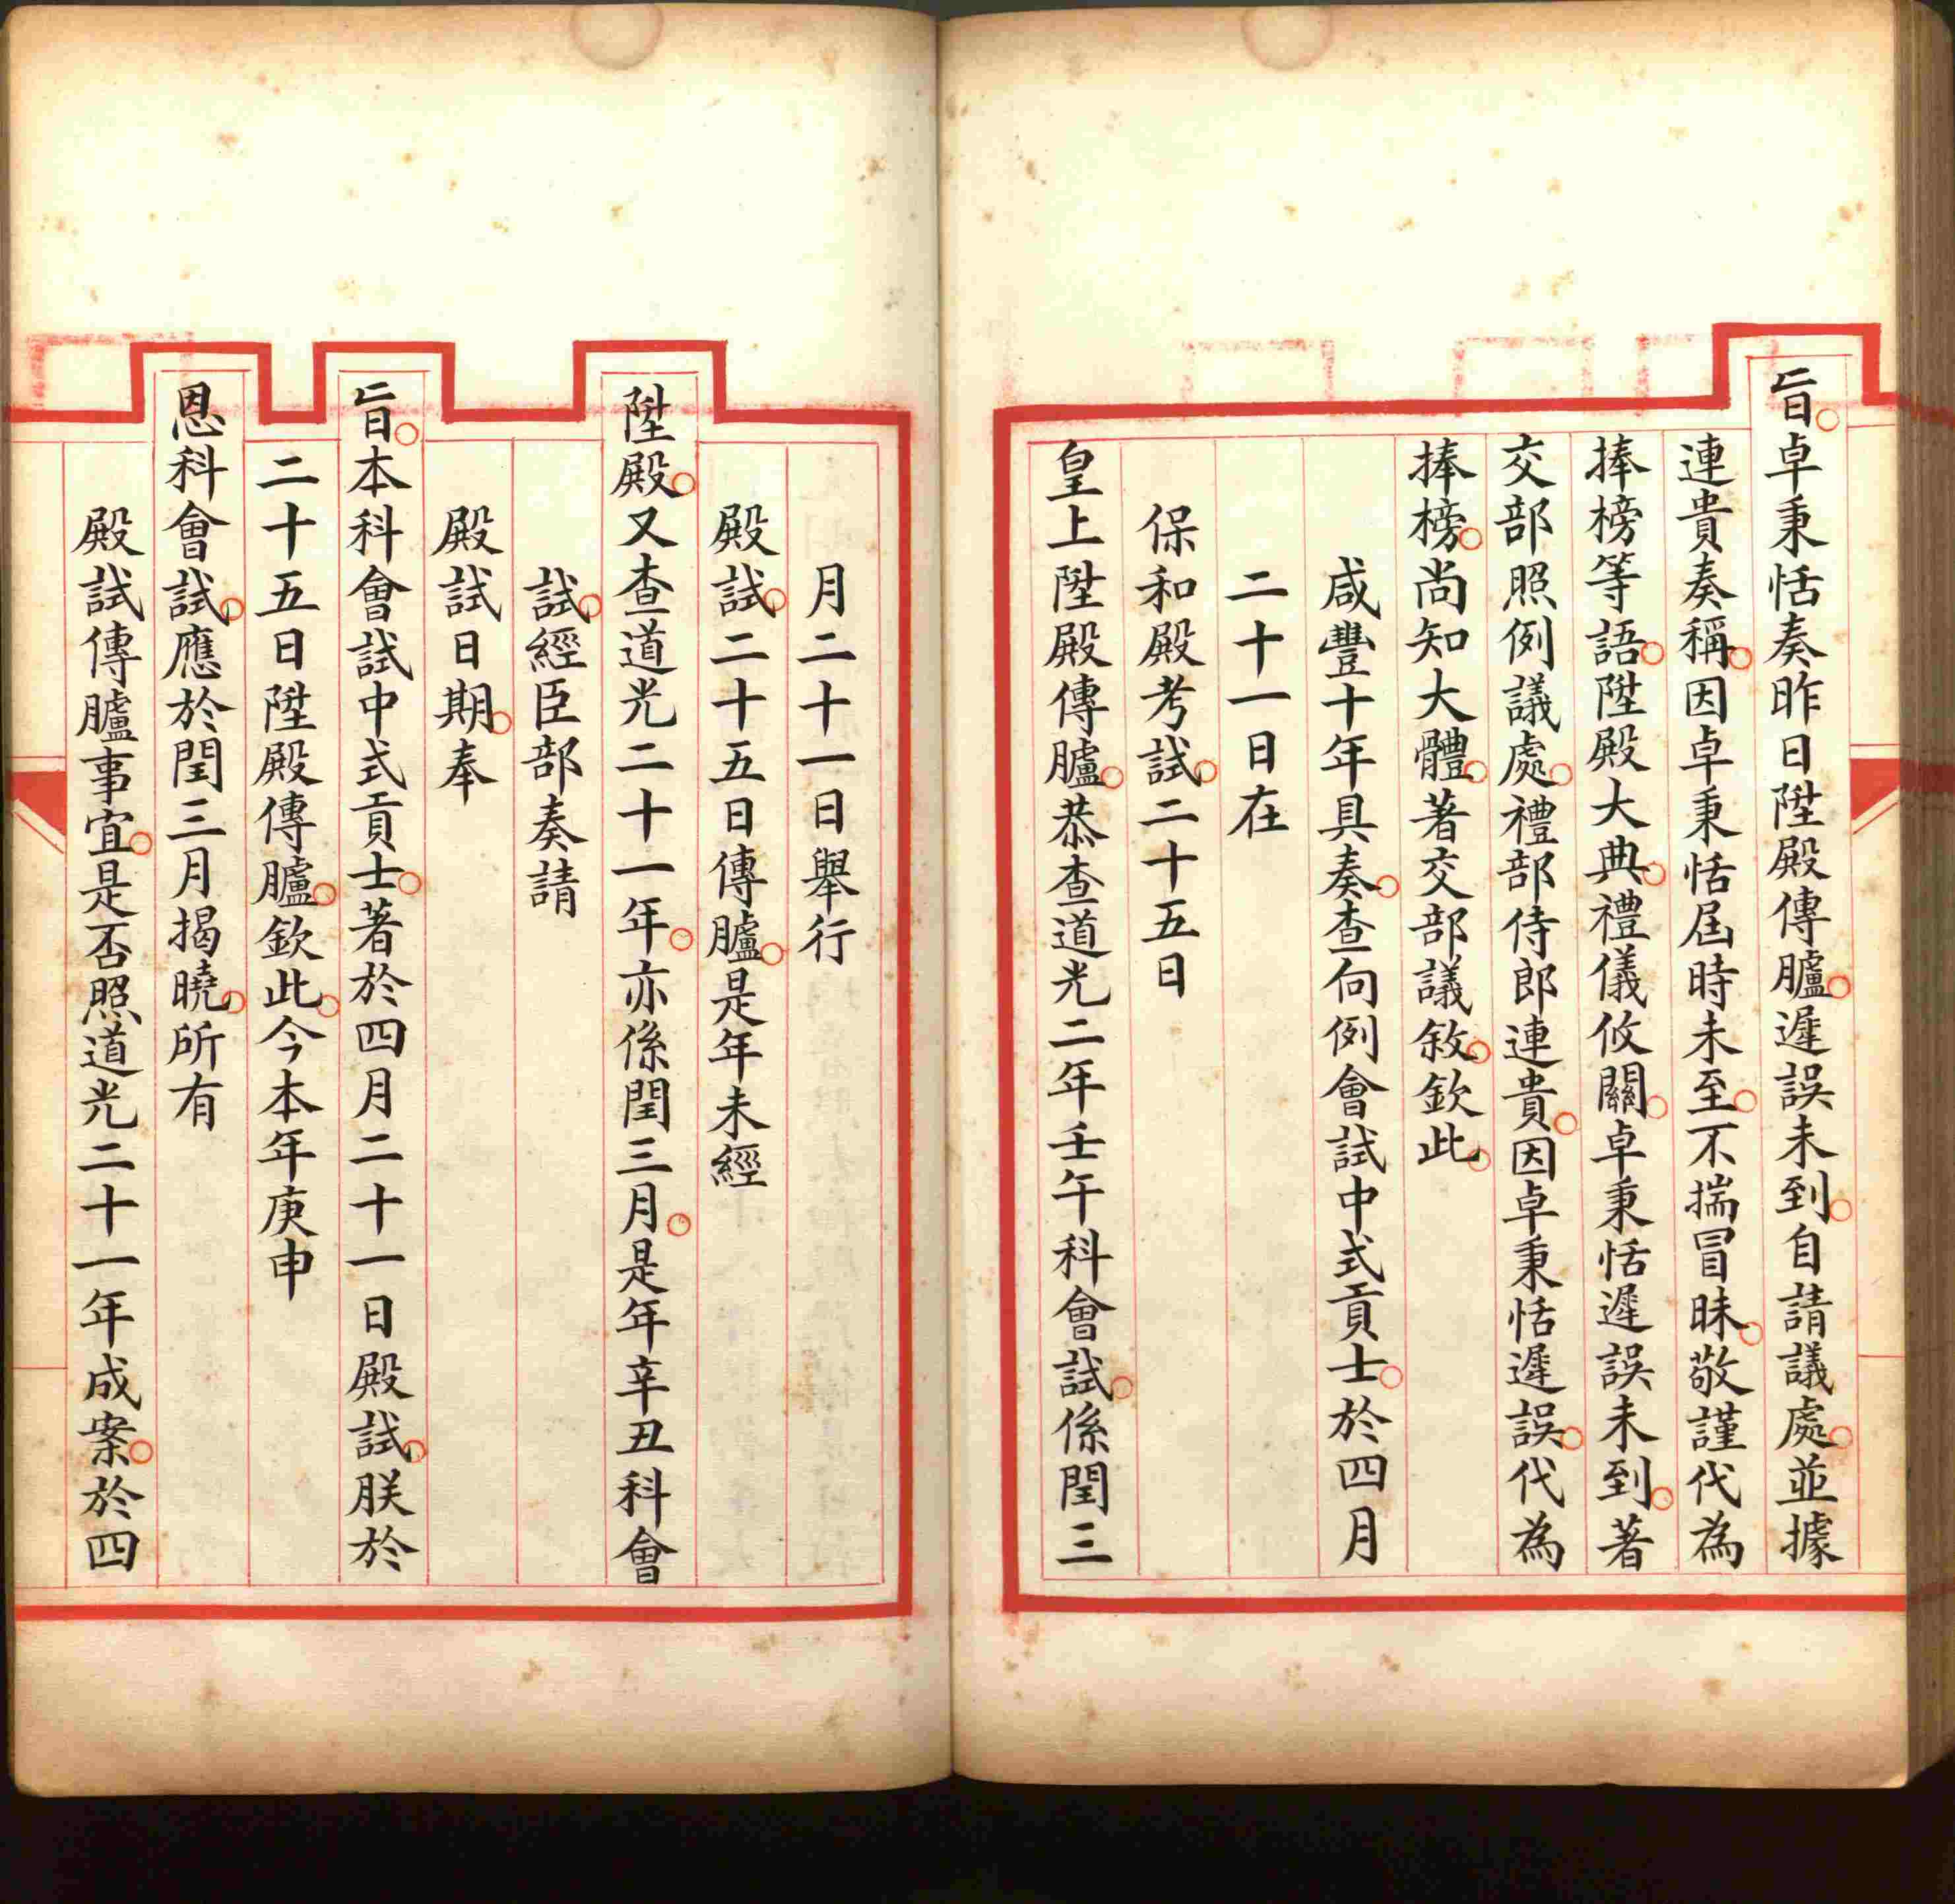 旨卓秉恬奏昨日陞殿傳臚遲誤未到自請議處並據
連貴奏稱因卓秉恬屆時未至不揣冒昧敬謹代為
捧榜等語陞殿大典禮儀攸關卓秉恬遲誤未到著
交部照例議處禮部侍郎連貴因卓秉恬遲誤代為
捧榜尚知大體著交部議敘欽此
咸豐十年具奏查向例會試中式貢士於四月
二十一日在
保和殿考試二十五日
皇上陞殿傳臚恭查道光二年壬午科會試係閏三
月二十一日舉行
殿試二十五日傳臚是年未經
陞殿又查道光二十一年亦係閏三月是年辛丑科會
試經臣部奏請
殿試日期奉
旨本科會試中式貢士著於四月二十一日殿試朕於
二十五日陞殿傳臚欽此今本年庚申
恩科會試應於閏三月揭曉所有
殿試傳臚事宜是否照道光二十一年成案於四